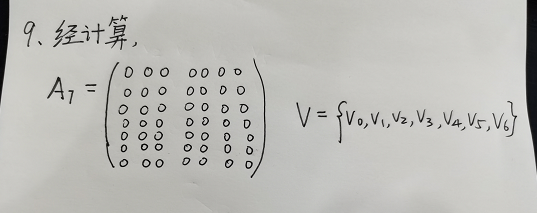 9、经计算,
A₇ = (0 0 0 0 0 0 0
0 0 0 0 0 0 0
0 0 0 0 0 0 0
0 0 0 0 0 0 0
0 0 0 0 0 0 0
0 0 0 0 0 0 0
0 0 0 0 0 0 0)
V = {V₀,V₁,V₂,V₃,V₄,V₅,V₆}